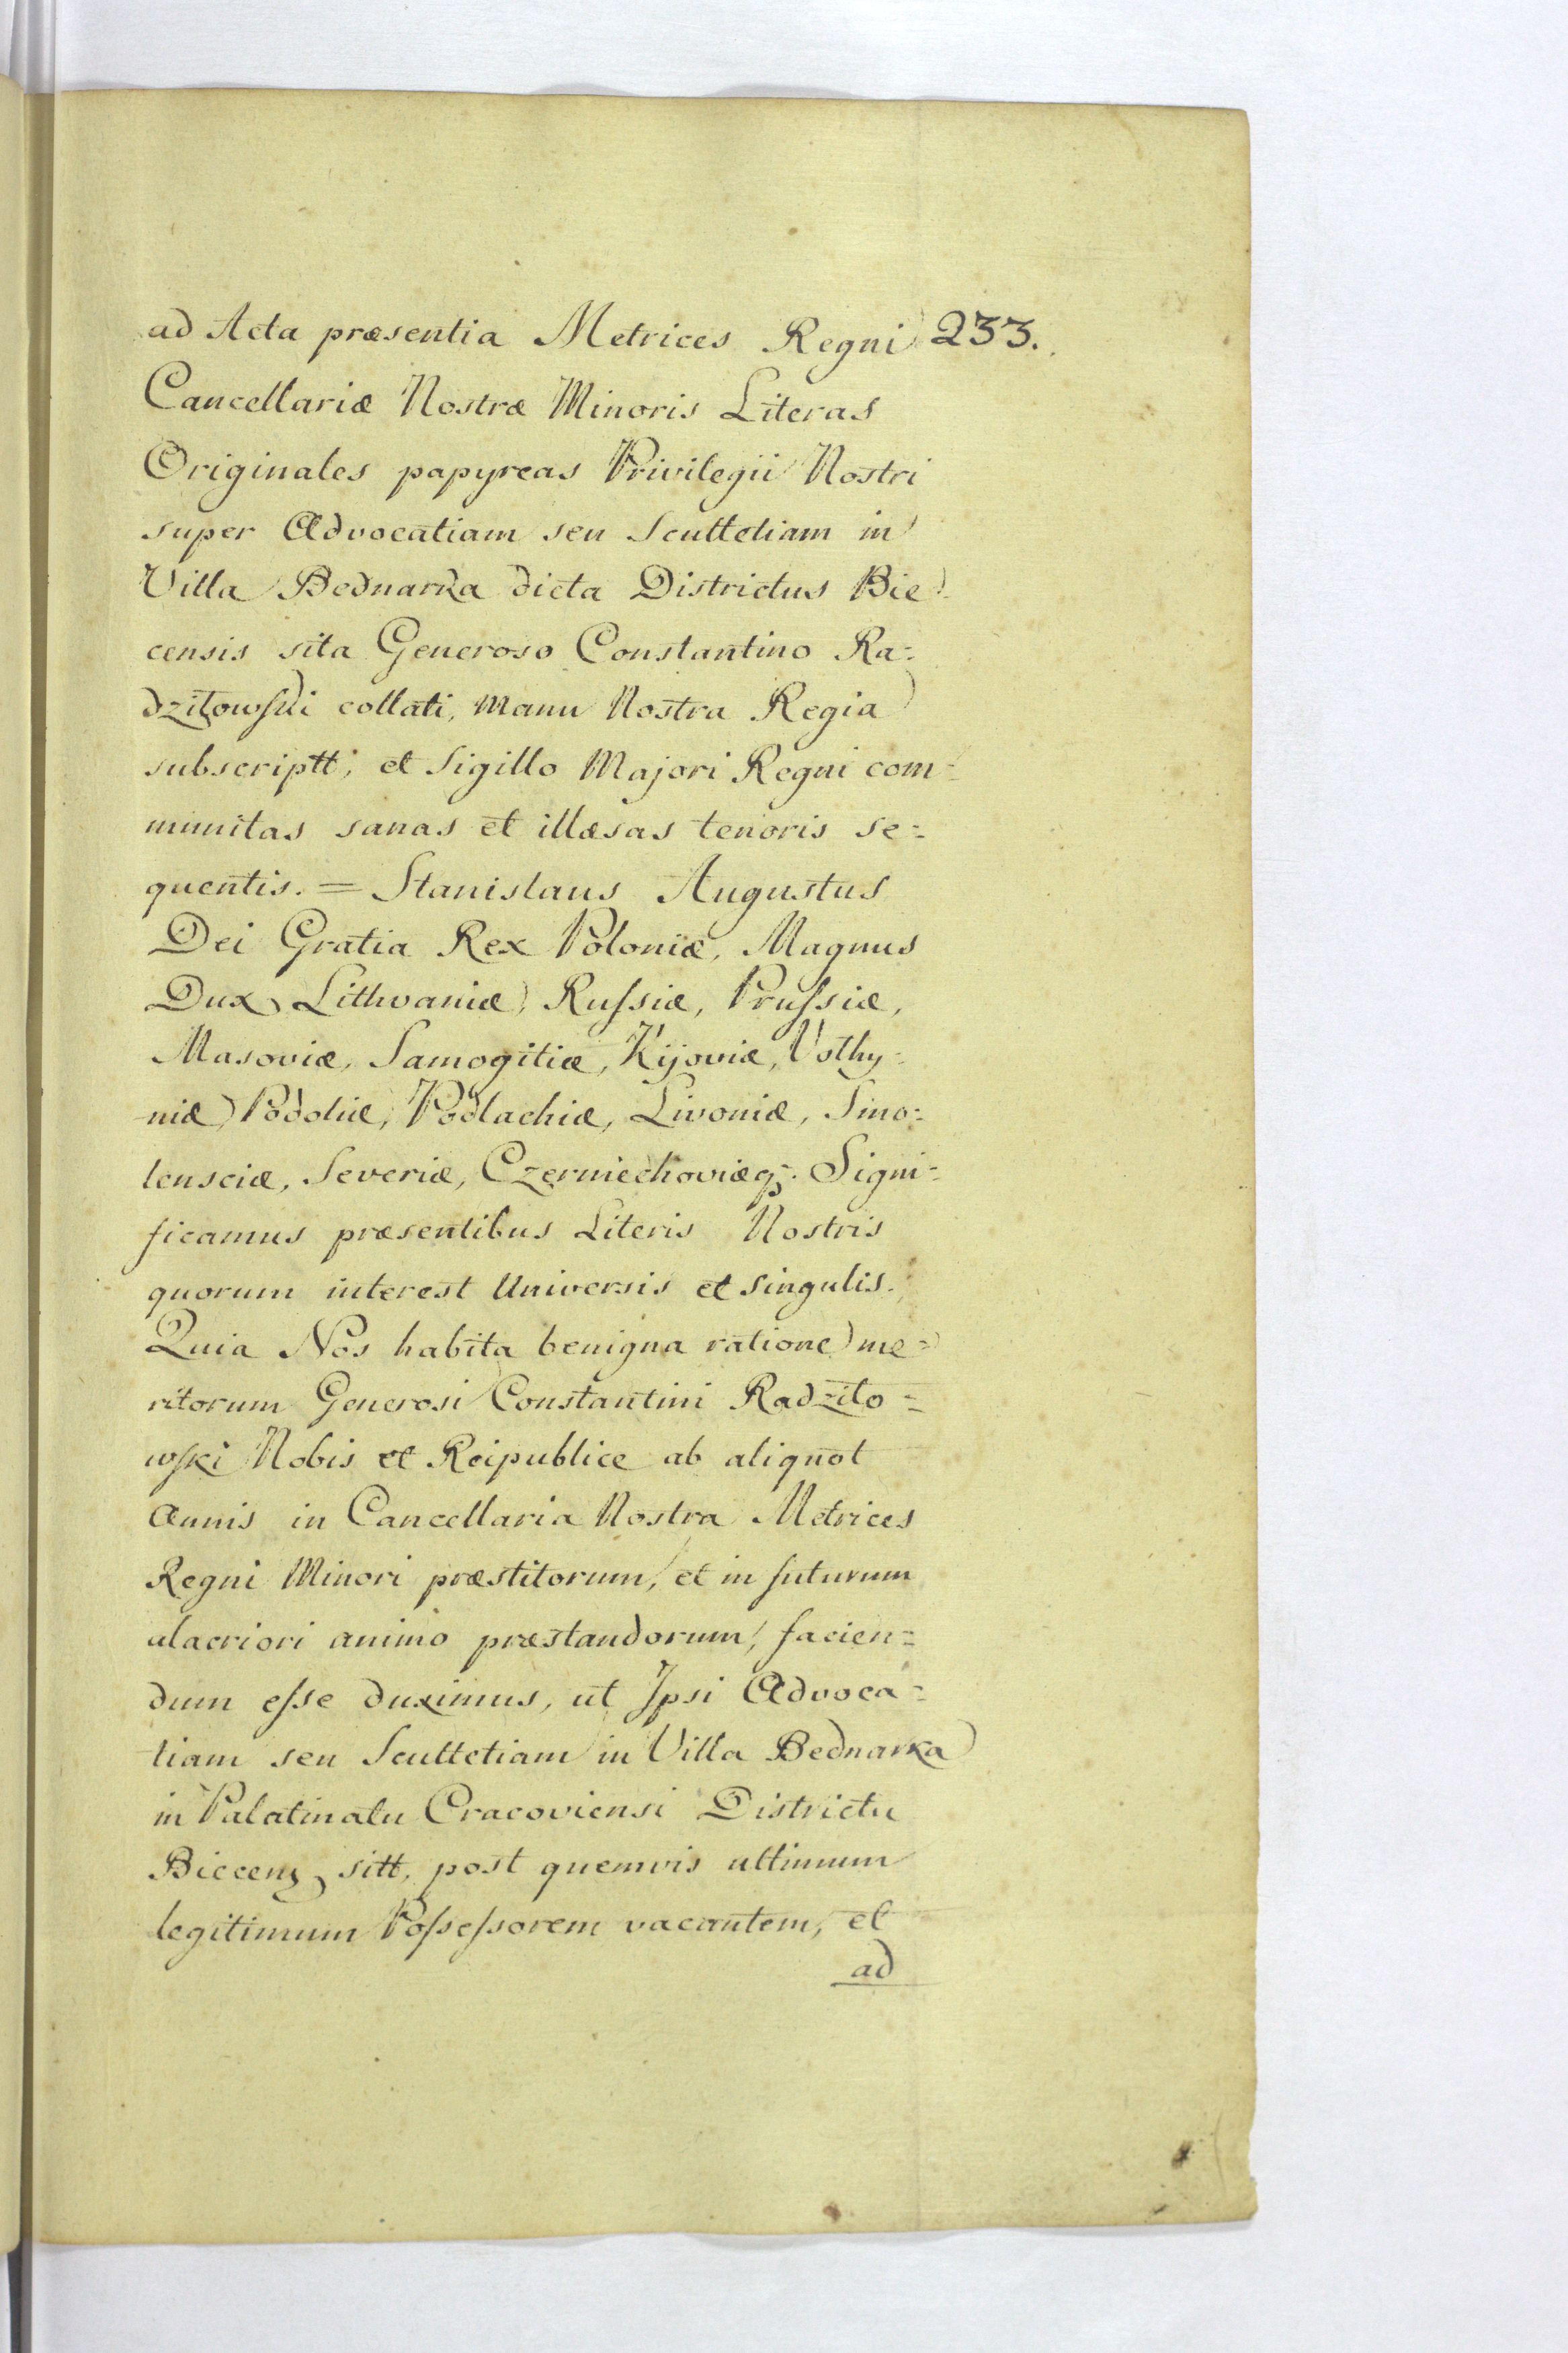 ad Acta præsentia Metrices Regni 233.
Cancellariæ Nostræ Minoris Literas
Originales papyreas Privilegii Nostri
super Advocatiam seu Scultetiam in
Villa Bednarka dicta Districtus Bie-
censis sita Generoso Constantino Ra=
dziłowſki collati, Manu Nostra Regia
subscriptt; et Sigillo Majori Regni com=
munitas sanas et illæsas tenoris se=
quentis. = Stanislaus Augustus
Dei Gratia Rex Poloniæ, Magnus
Dux Lithvaniæ, Ruſsiæ, Pruſsiæ,
Masoviæ, Samogitiæ, Kijoviæ, Volhy=
niæ, Podoliæ, Podlachiæ, Livoniæ, Smo=
lensciæ, Severiæ, Czerniechoviæq;. Signi=
ficamus præsentibus Literis Nostris
quorum interest Universis et Singulis.
Quia Nos habita benigna ratione me=
ritorum Generosi Constantini Radziło=
wſki Nobis et Reipublice ab aliquot
Annis in Cancellaria Nostra Metrices
Regni Minori præstitorum, et in futurum
alacriori animo præstandorum, facien=
dum eſse duximus, ut Ipsi Advoca=
tiam seu Scultetiam in Villa Bednarka
in Palatinatu Cracoviensi Districtu
Biecens, sitt, post quemvis ultimum
legitimum Poſseſsorem vacantem, et
ad